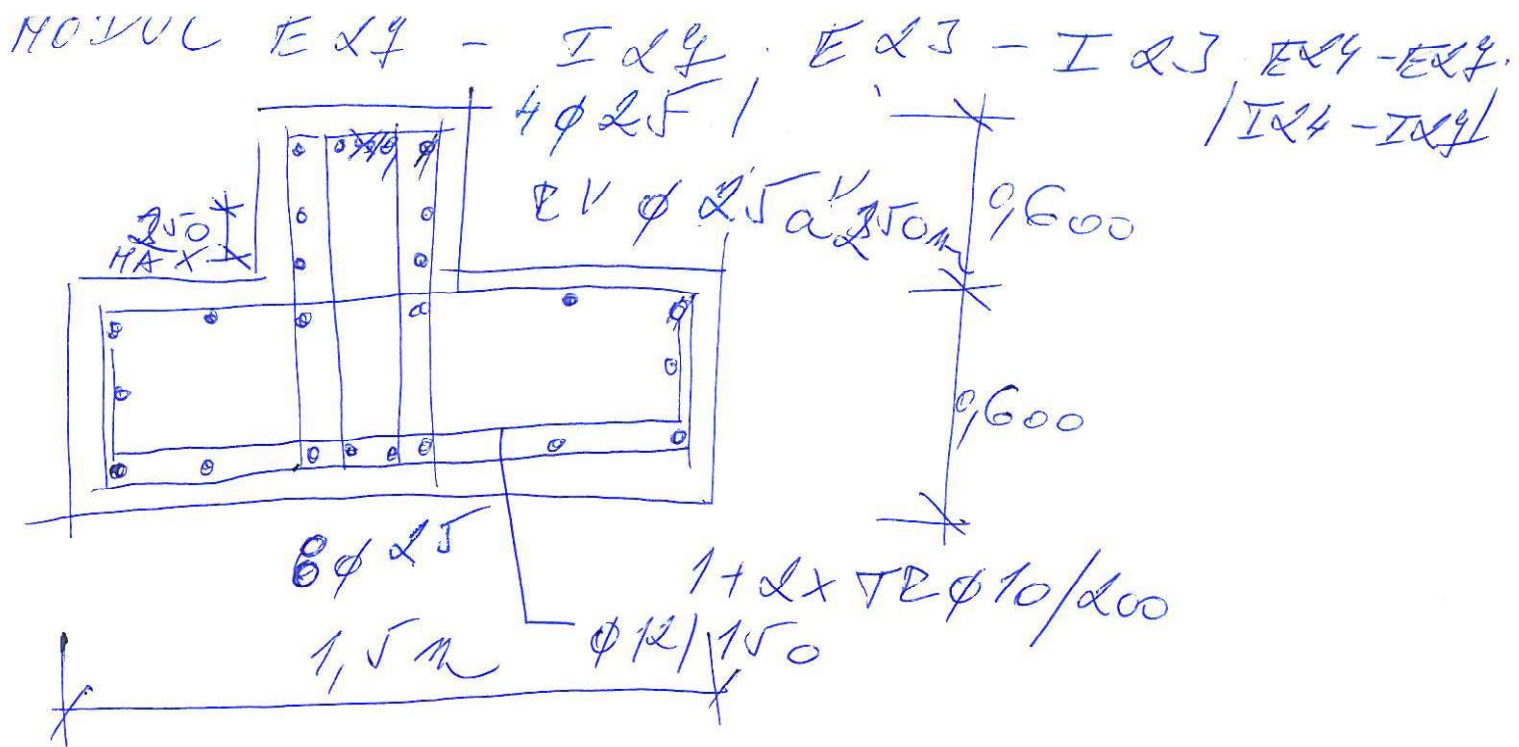 MODUL E27 - I27, E23 - I23, E24 - E27.
/I24 - I27/
4ϕ25 /
250
MAX
0,600
0,600
8ϕ25
1+2x TRϕ10/200
ϕ12/150
1,5m